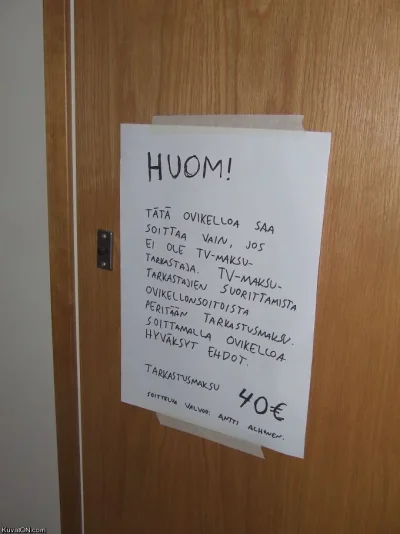 HUOM!
TÄTÄ OVIKELLOA SAA
SOITTAA VAIN, JOS
EI OLE TV-MAKSU-
TARKASTAJA. TV-MAKSU-
TARKASTAJIEN SUORITTAMISTA
OVIKELLONSOITOISTA
PERITÄÄN TARKASTUSMAKSU.
SOITTAMALLA OVIKELLOA
HYVÄKSYT EHDOT.
TARKASTUSMAKSU 40€
SOITTELUA VALVOO: ANTTI ALHONEN.
KuvatON.com